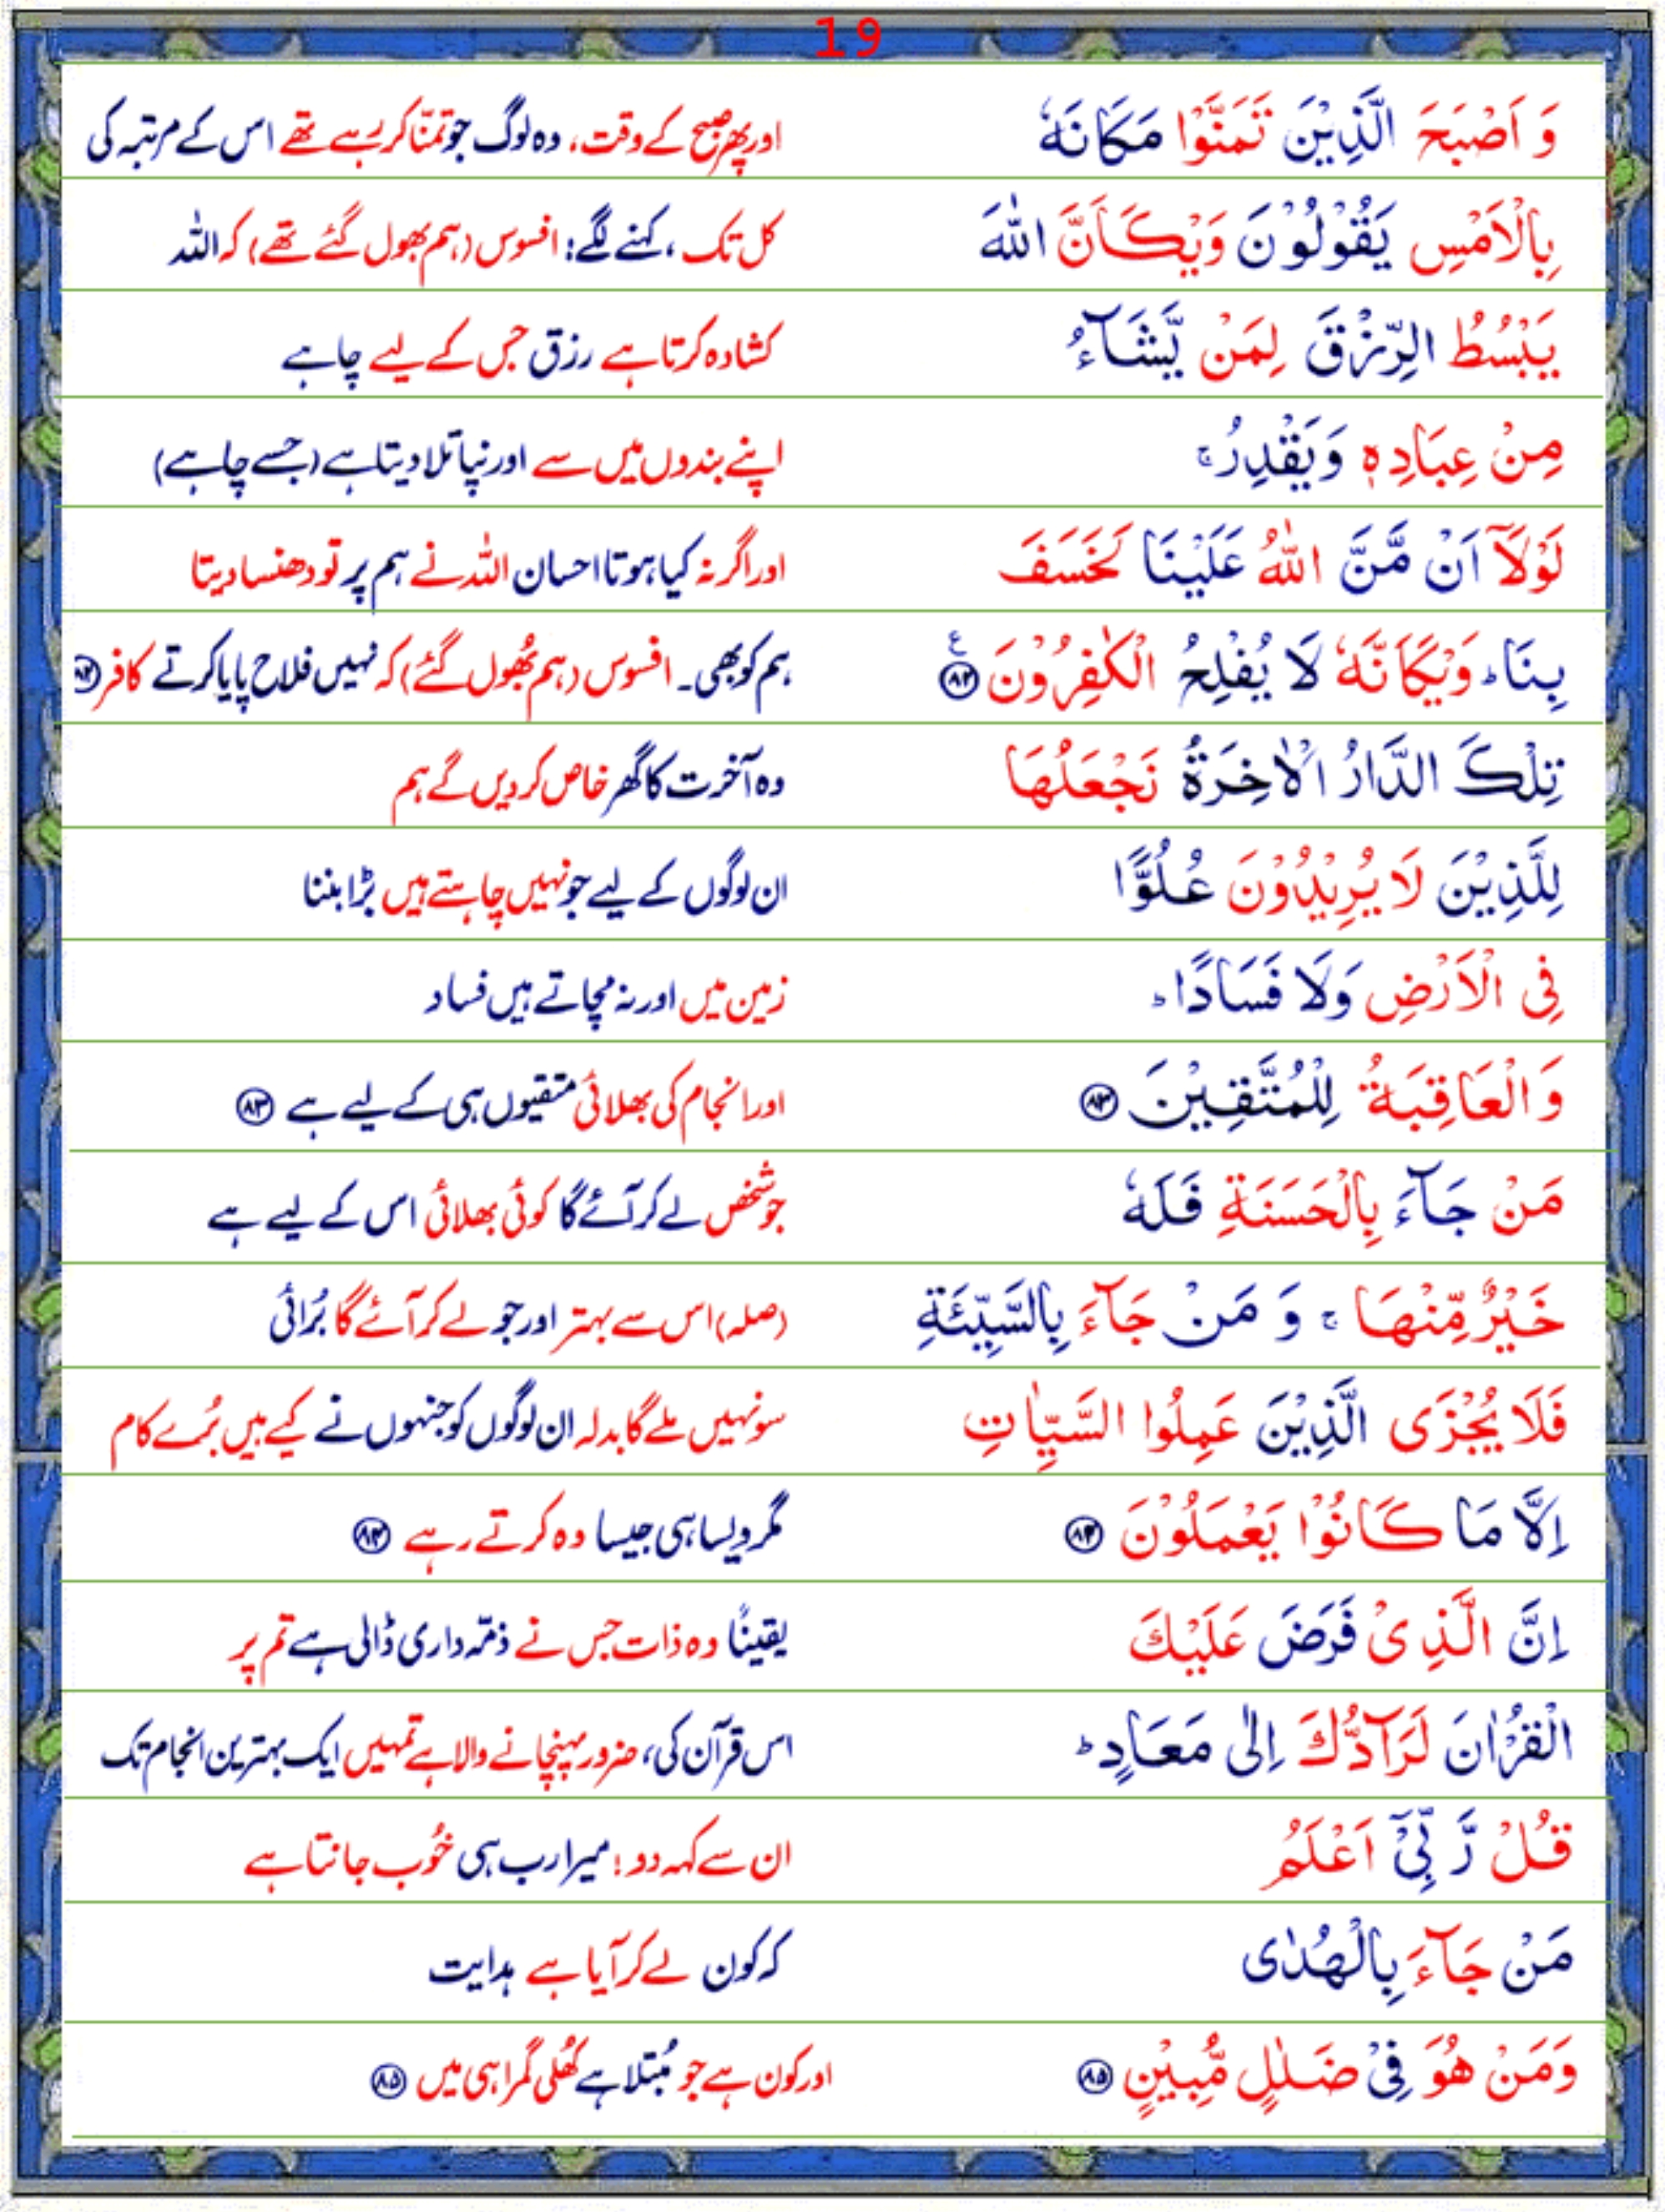 19
وَ اَصْبَحَ الَّذِیْنَ تَمَنَّوْا مَكَانَهٗ اور پھر صبح کے وقت، وہ لوگ جو تمنّا کر رہے تھے اس کے مرتبہ کی
بِالْاَمْسِ یَقُوْلُوْنَ وَیْكَاَنَّ اللّٰهَ کل تک، کہنے لگے: افسوس (ہم بھول گئے تھے) کہ اللہ
یَبْسُطُ الرِّزْقَ لِمَنْ یَّشَآءُ کشادہ کرتا ہے رزق جس کے لیے چاہے
مِنْ عِبَادِهٖ وَیَقْدِرُ ۚ اپنے بندوں میں سے اور نپا تلا دیتا ہے (جسے چاہے)
لَوْلَاۤ اَنْ مَّنَّ اللّٰهُ عَلَیْنَا لَخَسَفَ اور اگر نہ کیا ہوتا احسان اللہ نے ہم پر تو دھنسا دیتا
بِنَا ؕ وَیْكَاَنَّهٗ لَا یُفْلِحُ الْكٰفِرُوْنَ ۸۲ ع ہم کو بھی۔ افسوس (ہم بُھول گئے) کہ نہیں فلاح پایا کرتے کافر ۸۲
تِلْكَ الدَّارُ الْاٰخِرَةُ نَجْعَلُهَا وہ آخرت کا گھر خاص کر دیں گے ہم
لِلَّذِیْنَ لَا یُرِیْدُوْنَ عُلُوًّا ان لوگوں کے لیے جو نہیں چاہتے ہیں بڑا بننا
فِی الْاَرْضِ وَلَا فَسَادًا ؕ زمین میں اور نہ مچاتے ہیں فساد
وَ الْعَاقِبَةُ لِلْمُتَّقِیْنَ ۸۳ اور انجام کی بھلائی متقیوں ہی کے لیے ہے ۸۳
مَنْ جَآءَ بِالْحَسَنَةِ فَلَهٗ جو شخص لے کر آئے گا کوئی بھلائی اس کے لیے ہے
خَیْرٌ مِّنْهَا ۚ وَ مَنْ جَآءَ بِالسَّیِّئَةِ (صلہ) اس سے بہتر اور جو لے کر آئے گا بُرائی
فَلَا یُجْزَی الَّذِیْنَ عَمِلُوا السَّیِّاٰتِ سو نہیں ملے گا بدلہ ان لوگوں کو جنہوں نے کیے ہیں بُرے کام
اِلَّا مَا كَانُوْا یَعْمَلُوْنَ ۸۴ مگر ویسا ہی جیسا وہ کرتے رہے ۸۴
اِنَّ الَّذِیْ فَرَضَ عَلَیْكَ یقیناً وہ ذات جس نے ذمّہ داری ڈالی ہے تم پر
الْقُرْاٰنَ لَرَآدُّكَ اِلٰی مَعَادٍ ؕ اس قرآن کی، ضرور پہنچانے والا ہے تمہیں ایک بہترین انجام تک
قُلْ رَّبِّیْۤ اَعْلَمُ ان سے کہہ دو: میرا رب ہی خُوب جانتا ہے
مَنْ جَآءَ بِالْهُدٰی کہ کون لے کر آیا ہے ہدایت
وَمَنْ هُوَ فِیْ ضَلٰلٍ مُّبِیْنٍ ۸۵ اور کون ہے جو مُبتلا ہے کُھلی گمراہی میں ۸۵